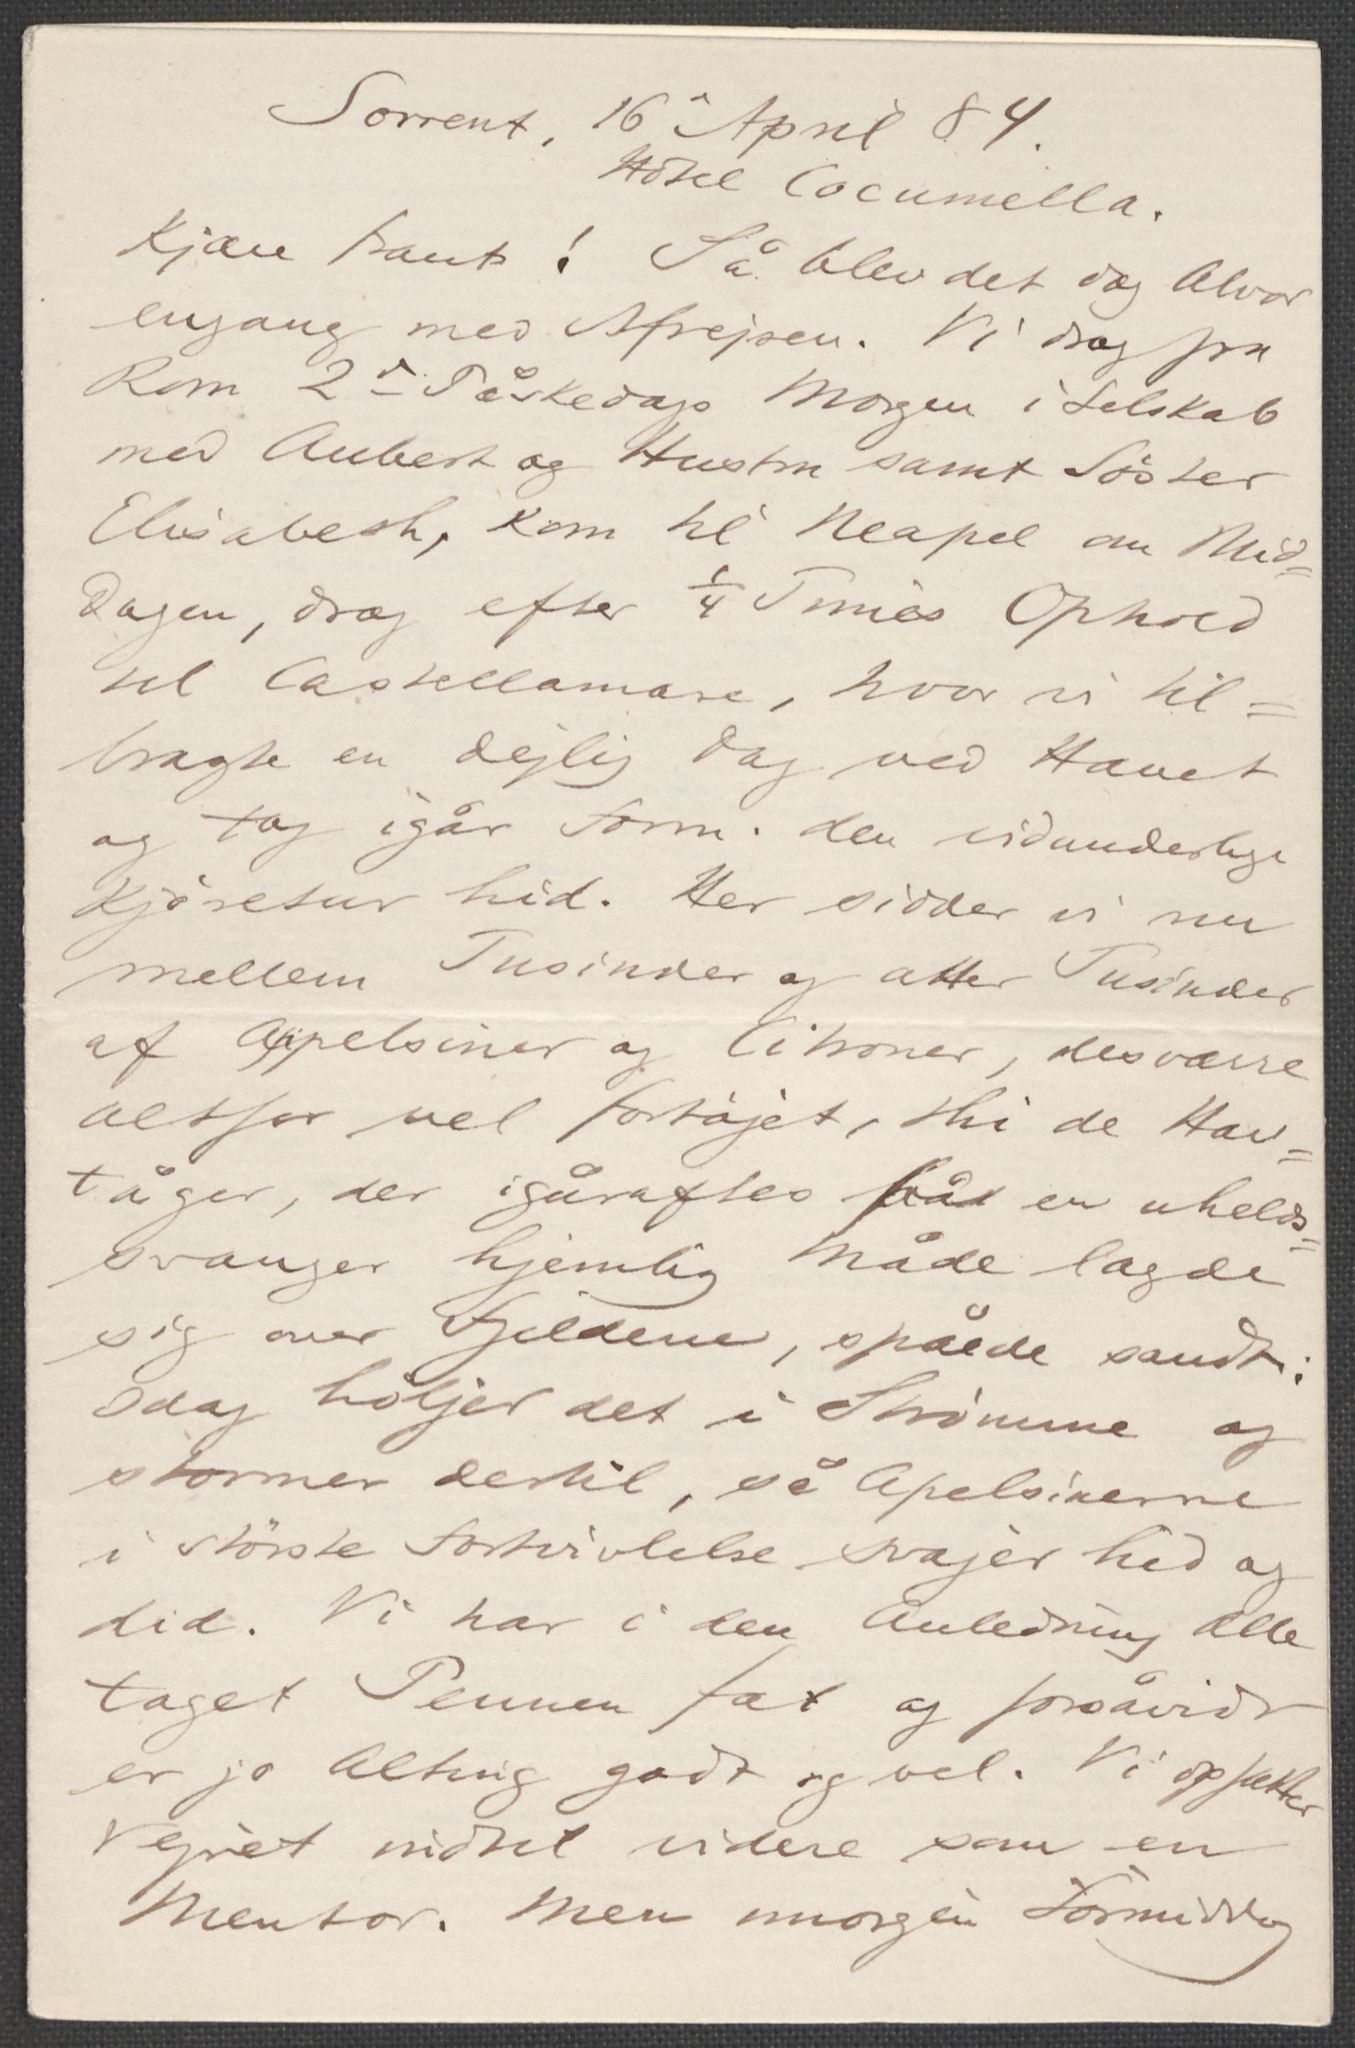 Sorrent, 16 April 84.
Hôtel Cocumella.
Kjære Frants! Så blev det dog Alvor
engang med Afrejsen. Vi drog fra
Rom 2den Påskedags Morgen i Selskab
med Aubert og Hustru samt Söster
Elisabeth, kom til Neapel om Mid=
dagen, drog efter ¼ Times Ophold
til Castellamare, hvor vi til=
bragte en dejlig Dag ved Havet
og tog igår Form. den vidunderlige
Kjöretur hid. Her sidder vi nu
mellem Tusinder og atter Tusinder
af Appelsiner og Citroner, desværre
altfor vel fortöjet, thi de Hav=
tåger, der igåraftes på en uhelds=
svanger hjemlig Måde lagde
sig over Fjeldene, spåede sandt:
Idag höljer det i Strömme og
stormer dertil, så Apelsinerne
i störste Fortvivlelse svajer hid og
did. Vi har i den Anledning Alle
taget Pennen fat og forsåvidt
er jo Alting godt og vel. Vi opfatter
Vejret indtil videre som en
Mentor. Men imorgen Formiddag